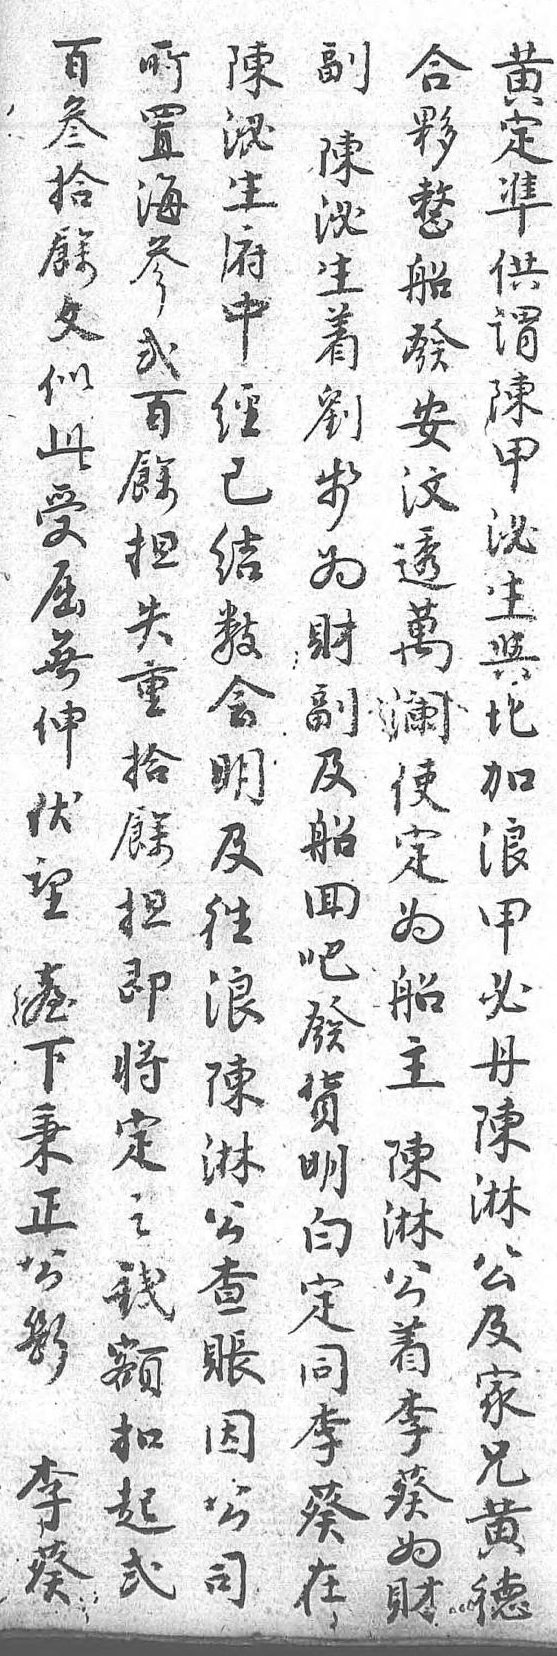 黄定準供謂陳甲泌生與圯加浪甲必丹陳淋公及家兄黄德
合夥整船發安汶透萬瀾使定為船主 陳淋公着李葵為財
副 陳泌生着劉步為財副及船回吧發貨明白定同李葵在
陳泌生府中經已結数会明及往浪陳淋公查賬因公司
所置海參弍百餘担失重拾餘担即将定之錢額扣起弍
百叁拾餘文似此受屈無伸伏望 臺下秉正公断 李葵